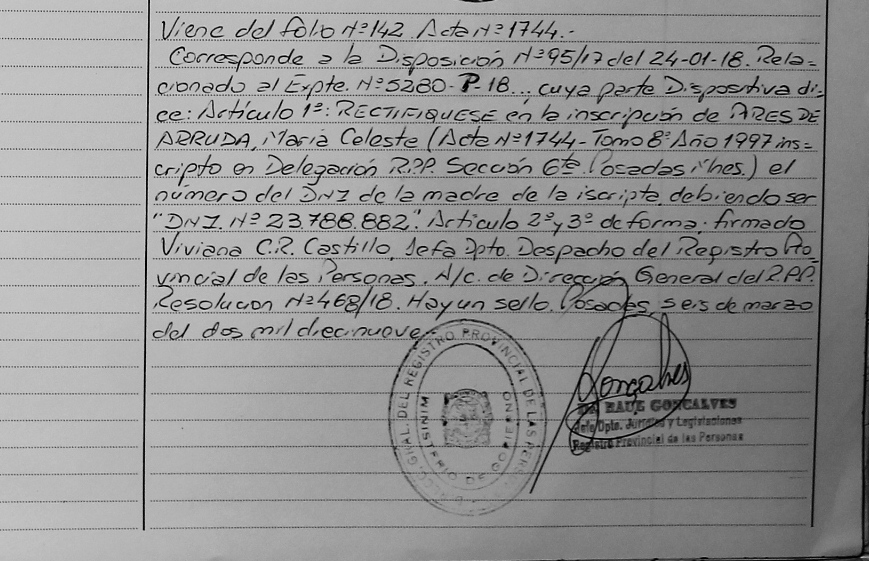 Viene del folio Nº142 Acta Nº1744.-
Corresponde a la Disposición Nº95/17 del 24-01-18. Rela=
cionado al Expte. Nº5280-P-18... cuya parte Dispositiva di=
ce: Artículo 1º: RECTIFIQUESE en la inscripción de ARES DE
ARRUDA, María Celeste (Acta Nº1744-Tomo 8º Año 1997 ins=
cripto en Delegación R.P.P. Sección 6ta Posadas Mnes.) el
número del DNI de la madre de la iscripta debiendo ser
"DNI. Nº 23.788.882". Artículo 2º y 3º de forma. firmado
Viviana C.R. Castillo, Jefa Dpto. Despacho del Registro Pro-
vincial de las Personas. A/c. de Dirección General del R.P.P.
Resolucion Nº468/18. Hay un sello. Posadas, seis de marzo
del dos mil diecinueve-
GRAL. DEL REGISTRO PROVINCIAL DE LAS PERS
MINISTERIO DE GOBIERNO
Goncalves
Dr. RAUL GONCALVES
Jefe Dpto. Jurídico y Legislaciones
Registro Provincial de las Personas